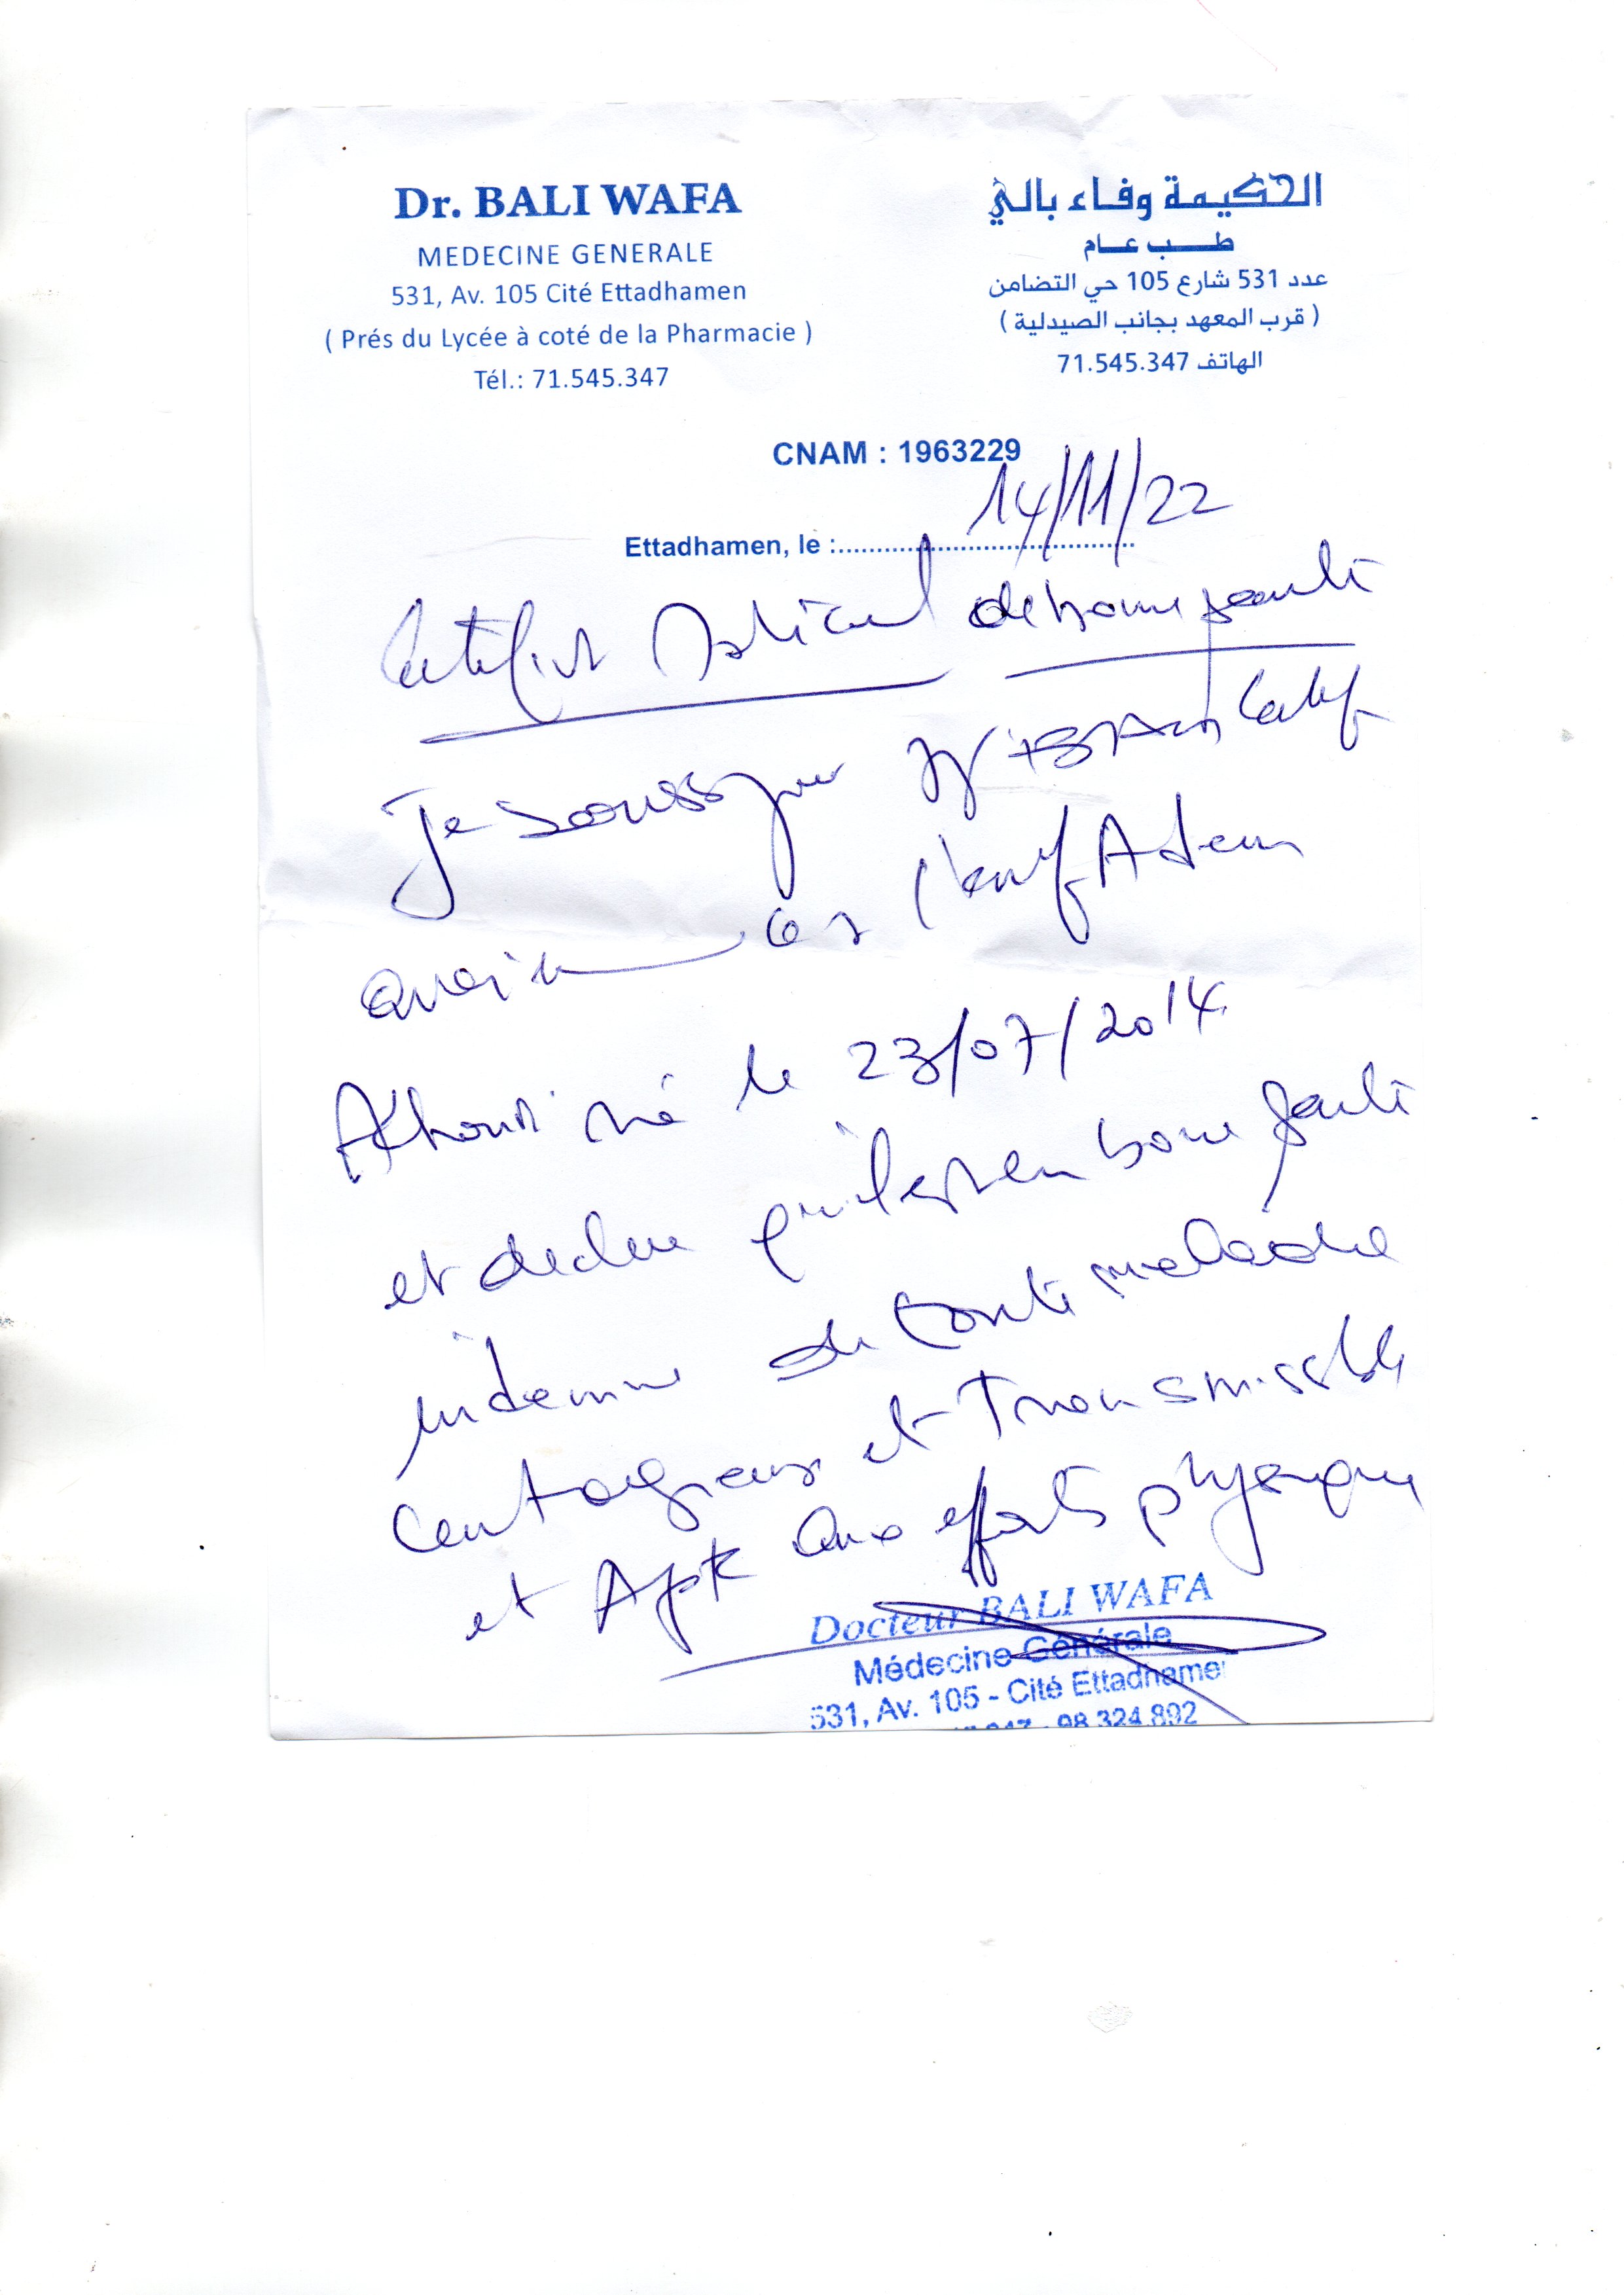 Dr. BALI WAFA
MEDECINE GENERALE
531, Av. 105 Cité Ettadhamen
( Prés du Lycée à coté de la Pharmacie )
Tél.: 71.545.347
الحكيمة وفاء بالي
طب عام
عدد 531 شارع 105 حي التضامن
( قرب المعهد بجانب الصيدلية )
الهاتف 71.545.347
CNAM : 1963229
Ettadhamen, le : 14/11/22
Certificat Médical de bonne santé
Je soussigné
avoir l'enf Adem
né le 23/07/2014
et declare qu'il est en bonne santé
indemne de toute maladie
contagieuse et Transmissible
et Apte aux efforts physiques
Docteur BALI WAFA
Médecine Générale
531, Av. 105 - Cité Ettadhame
98.324.892